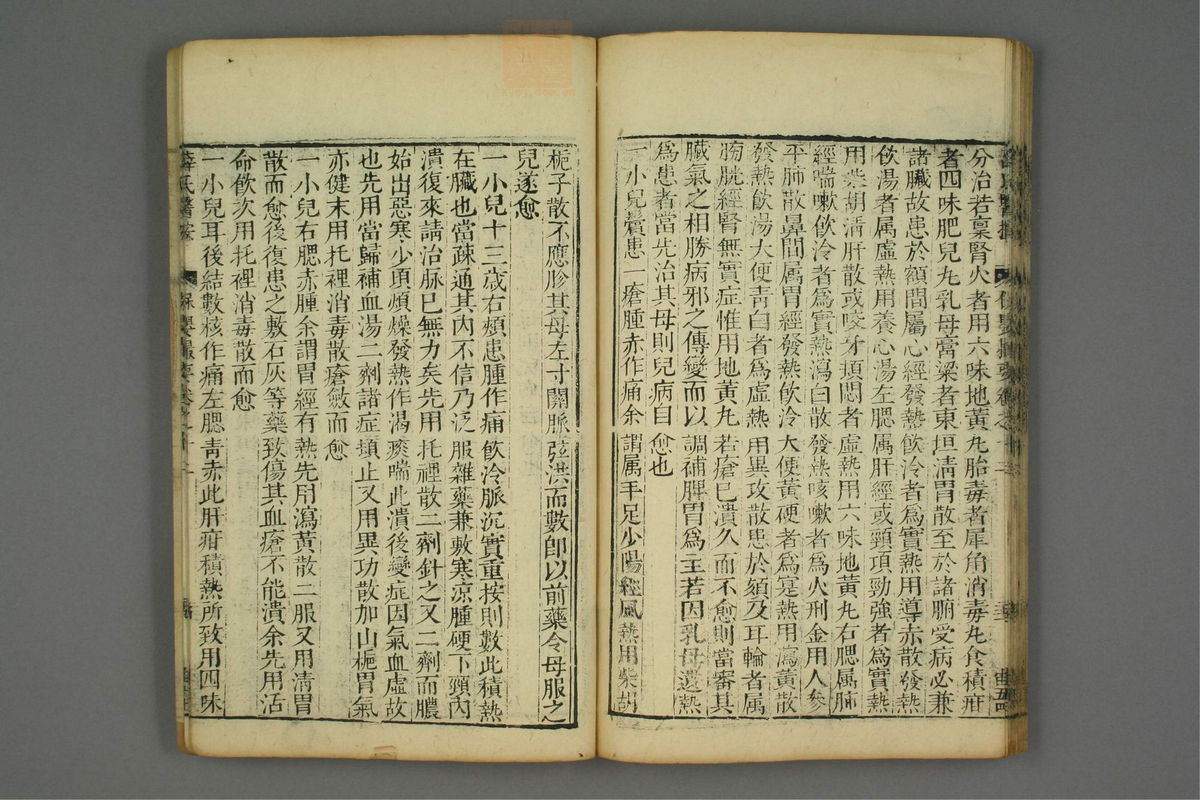 分治若禀腎火者用六味地黄丸胎毒者犀角消毒丸食積疳
者四味肥兒丸乳母膏粱者東垣清胃散至於諸腑受病必兼
諸臟故患於額間屬心經發熱飲冷者為實熱用導赤散發熱
飲湯者属虛熱用養心湯左腮属肝經或頸項勁強者為實熱
用柴胡清肝散或咬牙頓悶者虛熱用六味地黄丸右腮属肺
經喘嗽飲冷者為實熱瀉白散發熱咳嗽者為火刑金用人參
平肺散鼻間属胃經發熱飲冷大便黄硬者為寔熱用瀉黄散
發熱飲湯大便青白者為虛熱用異攻散患於頦及耳輪者属
膀胱經腎無實症惟用地黄丸若瘡已潰久而不愈則當審其
臟氣之相勝病邪之傳變而以調補脾胃為主若因乳母遺熱
為患者當先治其母則兒病自愈也
一小兒鬢患一瘡腫赤作痛余謂属手足少陽經風熱用柴胡
梔子散不應胗其母左寸關脈弦洪而數卽以前藥令母服之
兒遂愈
一小兒十三歳右頰患腫作痛飲冷脈沉實重按則數此積熱
在臟也當疎通其内不信乃泛服雜藥兼敷寒凉腫硬下頸内
潰復來請治脉已無力矣先用托裡散二劑針之又二劑而膿
始出惡寒少頃煩燥發熱作渴痰喘此潰後變症因氣血虛故
也先用當歸補血湯二劑諸症頓止又用異功散加山梔胃氣
亦健末用托裡消毒散瘡斂而愈
一小兒右腮赤腫余謂胃經有熱先用瀉黄散二服又用清胃
散而愈後復患之敷石灰等藥致傷其血瘡不能潰余先用活
命飲次用托裡消毒散而愈
一小兒耳後結數核作痛左腮青赤此肝疳積熱所致用四味
薛氏醫按
保嬰撮要卷之十二